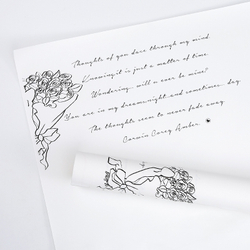 Thoughts of you dare through my mind.
Knowing it is just a matter of time.
Wondering, will u ever be mine?
You are in my dreams night and sometimes day
The thoughts seem to never fade away.
Corwin Corey Amber